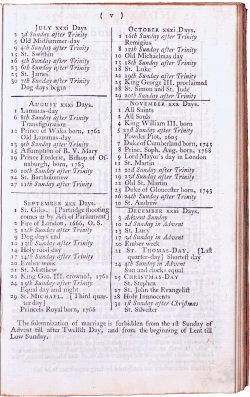 ( v )
JULY xxxi Days.
2 3d Sunday after Trinity
5 Old Midsummer-day
9 4th Sunday after Trinity
15 St. Swithin
16 5th Sunday after Trinity
23 6th Sunday after Trinity
25 St. James
30 7th Sunday after Trinity
Dog days begin
AUGUST xxxi Days.
1 Lammas-day
6 8th Sunday after Trinity
Transfiguration
12 Prince of Wales born, 1762
Old Lammas-day
13 9th Sunday after Trinity
15 Assumption of B. V. Mary
Prince Frederic, Bishop of Osnaburgh, born, 1763
20 10th Sunday after Trinity
24 St. Bartholomew
27 11th Sunday after Trinity
SEPTEMBER xxx Days.
1 St. Giles. [Partridge shooting
comes in by Act of Parliament]
2 Fire of London, 1666, O. S.
3 12th Sunday after Trinity
Dog days end
13th Sunday after Trinity
14 Holy rood day
17 14th Sunday after Trinity
20 Ember week
21 St. Matthew
22 King Geo. III. crowned, 1761
24 15th Sunday after Trinity
Equal day and night
29 St. MICHAEL. [Third quarter
day]
Princess Royal born, 1766
OCTOBER xxxi Days.
1 16th Sunday after Trinity
Remigius
8 17th Sunday after Trinity
Old Michaelmas day
15 18th Sunday after Trinity
18 St. Luke
22 19th Sunday after Trinity
25 King George III. proclaimed
28 St. Simon and St. Jude
29 20th Sunday after Trinity
NOVEMBER xxx Days.
1 All Saints
2 All Souls
4 King William III. born
5 21st Sunday after Trinity
Powder Plot, 1605
7 Duke of Cumberland born, 1745
8 Princ. Soph. Aug. born, 1768
9 Lord Mayor's day in London
11 St. Martin
12 22d Sunday after Trinity
19 23d Sunday after Trinity
Old St. Martin
25 Duke of Gloucester born, 1743
26 24th Sunday after Trinity
30 St. Andrew
DECEMBER xxxi Days.
3 Advent Sunday
10 2d Sunday in Advent
13 St. Lucy
17 3d Sunday in Advent
20 Ember week
21 ST. THOMAS-DAY. [Last
quarter-day] Shortest day
24 4th Sunday in Advent
Sun and clocks equal
25 CHRISTMAS-DAY
26 St. Stephen
27 St. John the Evangelist
28 Holy Innocents
31 1st Sunday after Christmas
St. Silvester
The solemnization of marriage is forbidden from the 1st Sunday of
Advent till after Twelfth Day, and from the beginning of Lent till
Low Sunday.